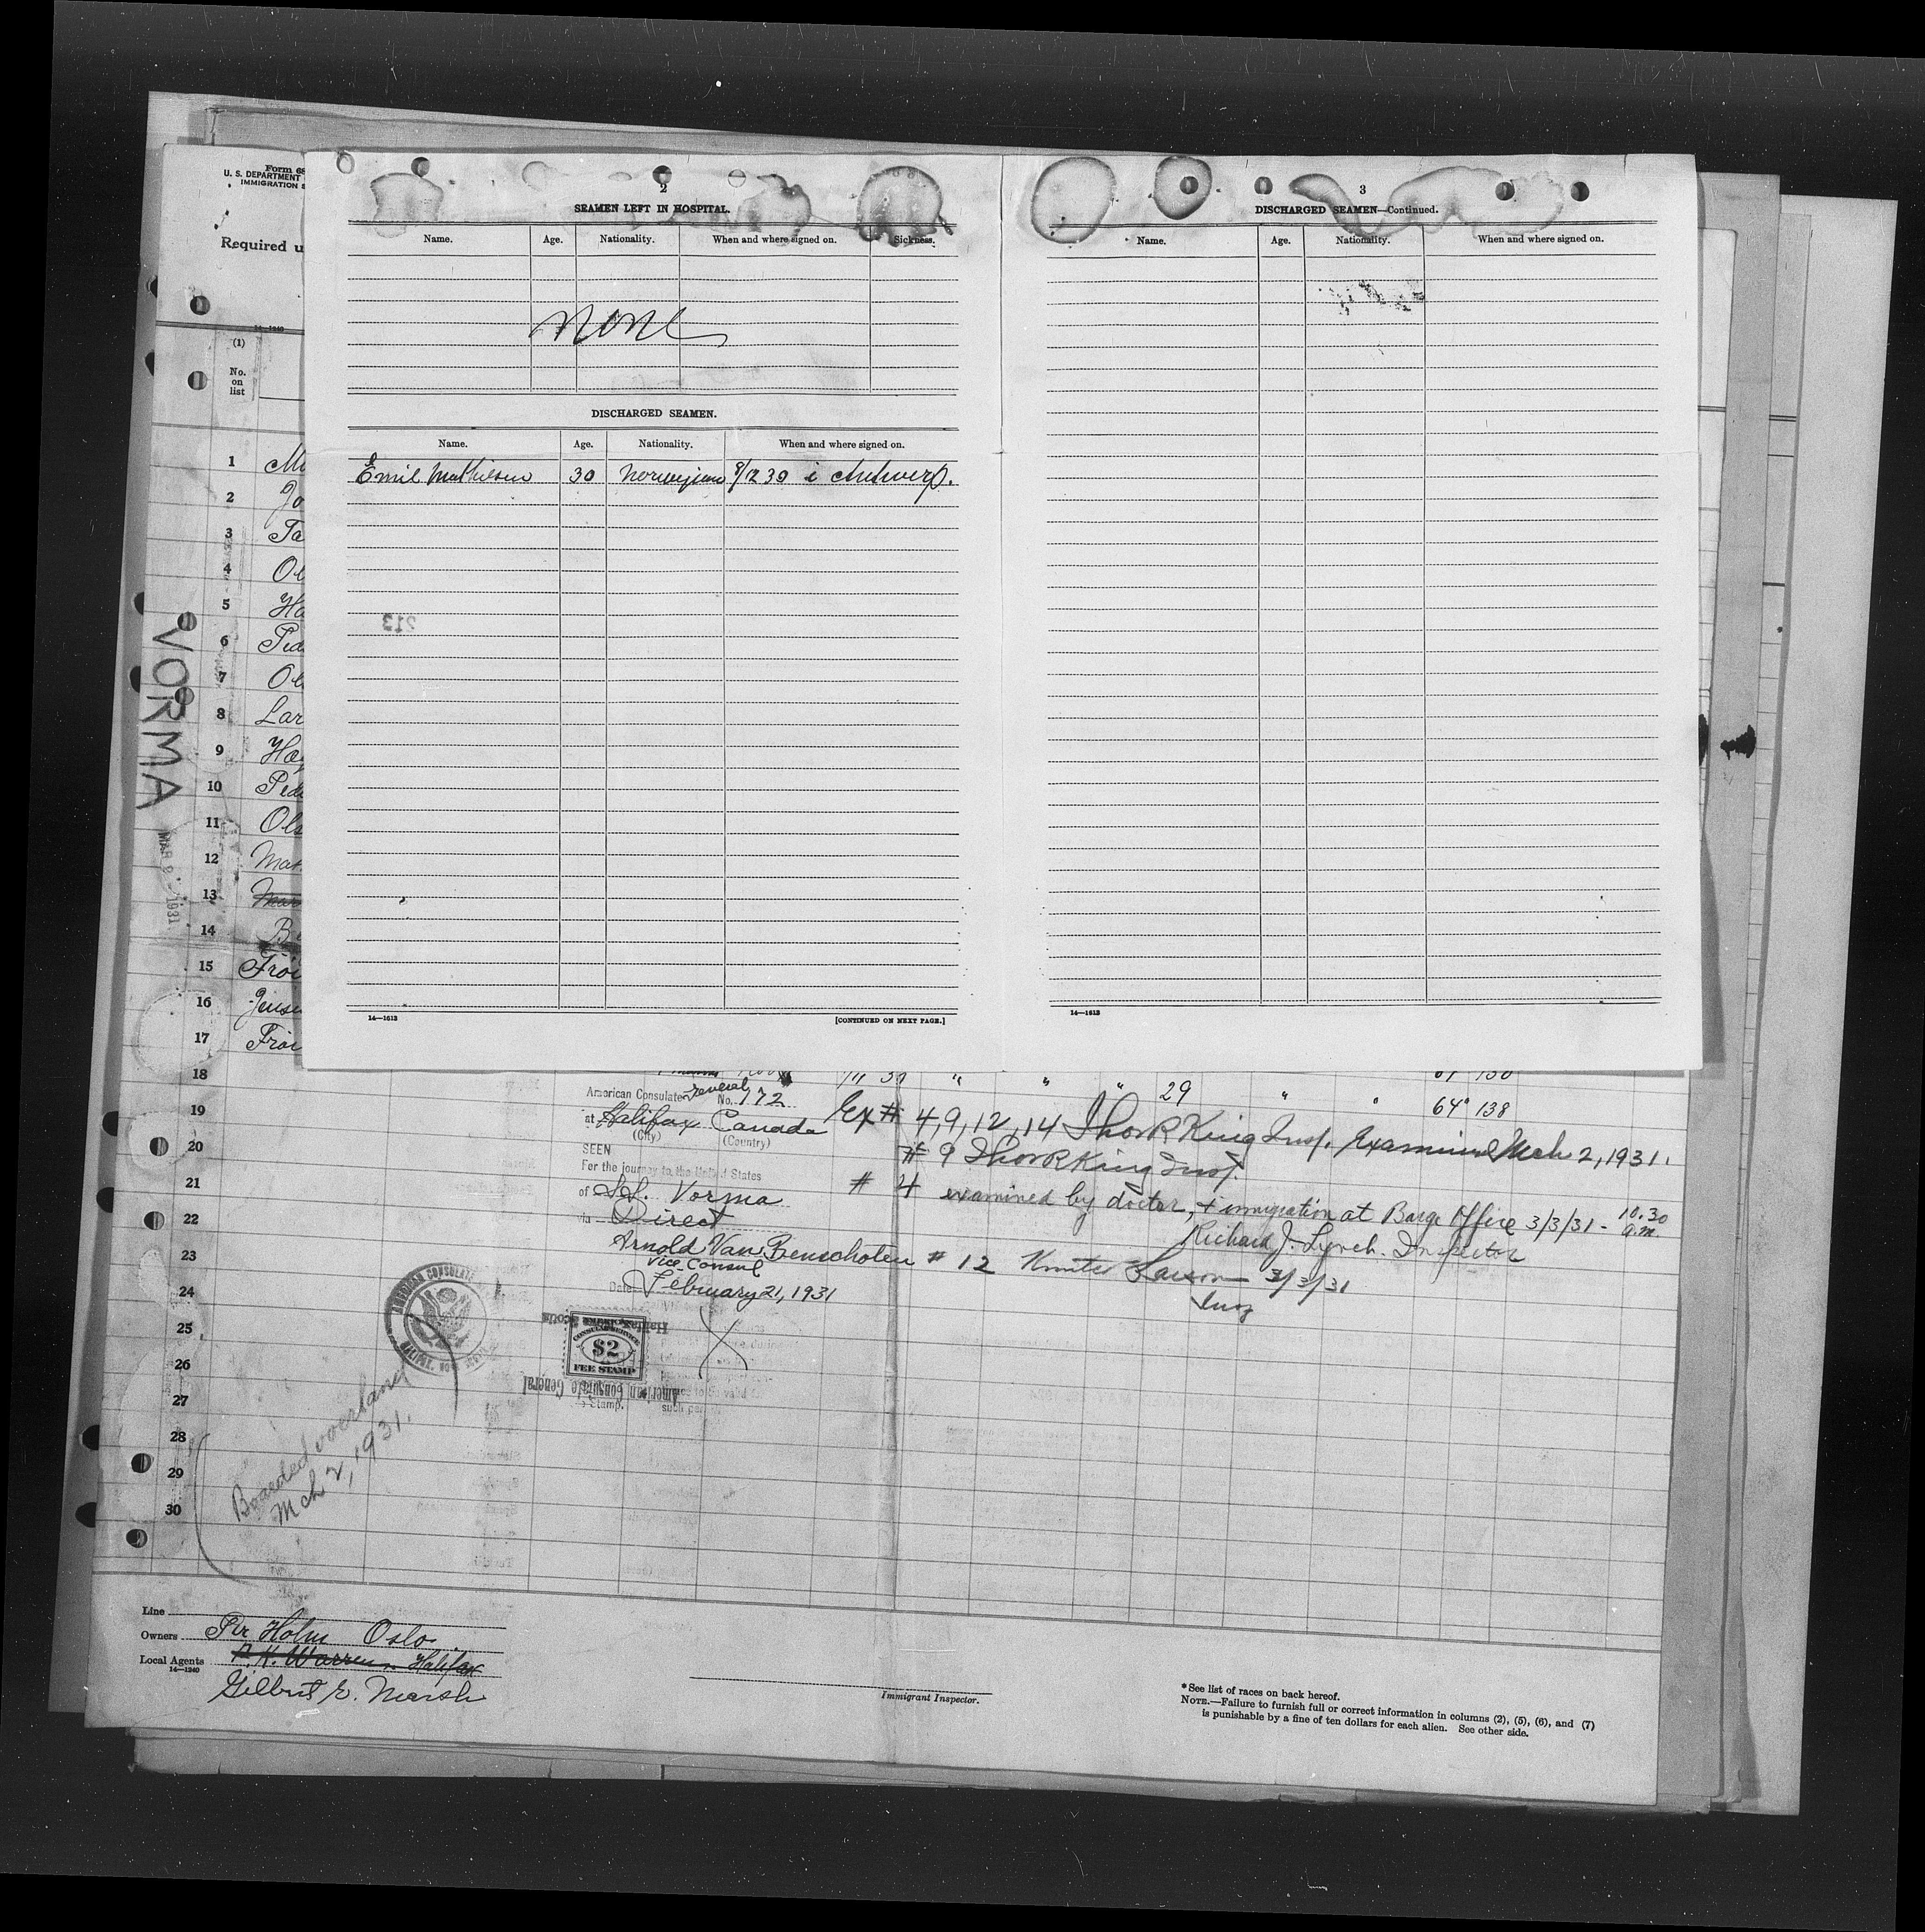 Form 68
U. S. DEPARTMENT
IMMIGRATION S
Required u
14—1240
(1)
No.
on
list
2
SEAMEN LEFT IN HOSPITAL.
Name. Age. Nationality. When and where signed on. Sickness.
none
DISCHARGED SEAMEN.
Name. Age. Nationality. When and where signed on.
Emil Mathilsen 30 Norwegian 8/12 30 i Antwerp.
213
14—1613
[CONTINUED ON NEXT PAGE.]
3
DISCHARGED SEAMEN—Continued.
Name. Age. Nationality. When and where signed on.
14—1613
VORMA
MAR 2 - 1931
1 Ma
2 Jo
3 Ta
4 Ol
5 Ha
6 Ped
7 Ol
8 Lar
9 Ha
10 Ped
11 Ols
12 Mat
13 Mar
14 B
15 Froi
16 Jense
17 Froi
18
19
20
21
22
23
24
25
26
27
28
29
30
/11 30 " " " 29 " " 64" 138
American Consulate General No. 172
at Halifax Canada
(City) (Country)
SEEN
For the journey to the United States
of S.S. Vorma
via Direct
Arnold Van Benschoten
Vice Consul
Date February 21, 1931
Ex # 4, 9, 12, 14 Thos R King Insp. Examined Mch 2, 1931.
# 9 Thos R King Insp.
# 4 examined by doctor, + immigration at Barge Office 3/3/31 - 10.30 a.m.
Richard J. Lynch. Inspector
# 12 Larson 3/3/31
Insp
AMERICAN CONSULATE
HALIFAX, NOVA SCOTIA
AMERICAN
CONSULAR SERVICE
$2
FEE STAMP
Halifax, Nova Scotia
American Consulate General
Stamp.
Boarded overland
Mch 2, 1931.
Line
Owners Per Holm Oslo.
Local Agents P. H. Warren Halifax
14—1240
Gilbert E. Marsh
Immigrant Inspector.
* See list of races on back hereof.
NOTE.—Failure to furnish full or correct information in columns (2), (5), (6), and (7)
is punishable by a fine of ten dollars for each alien. See other side.